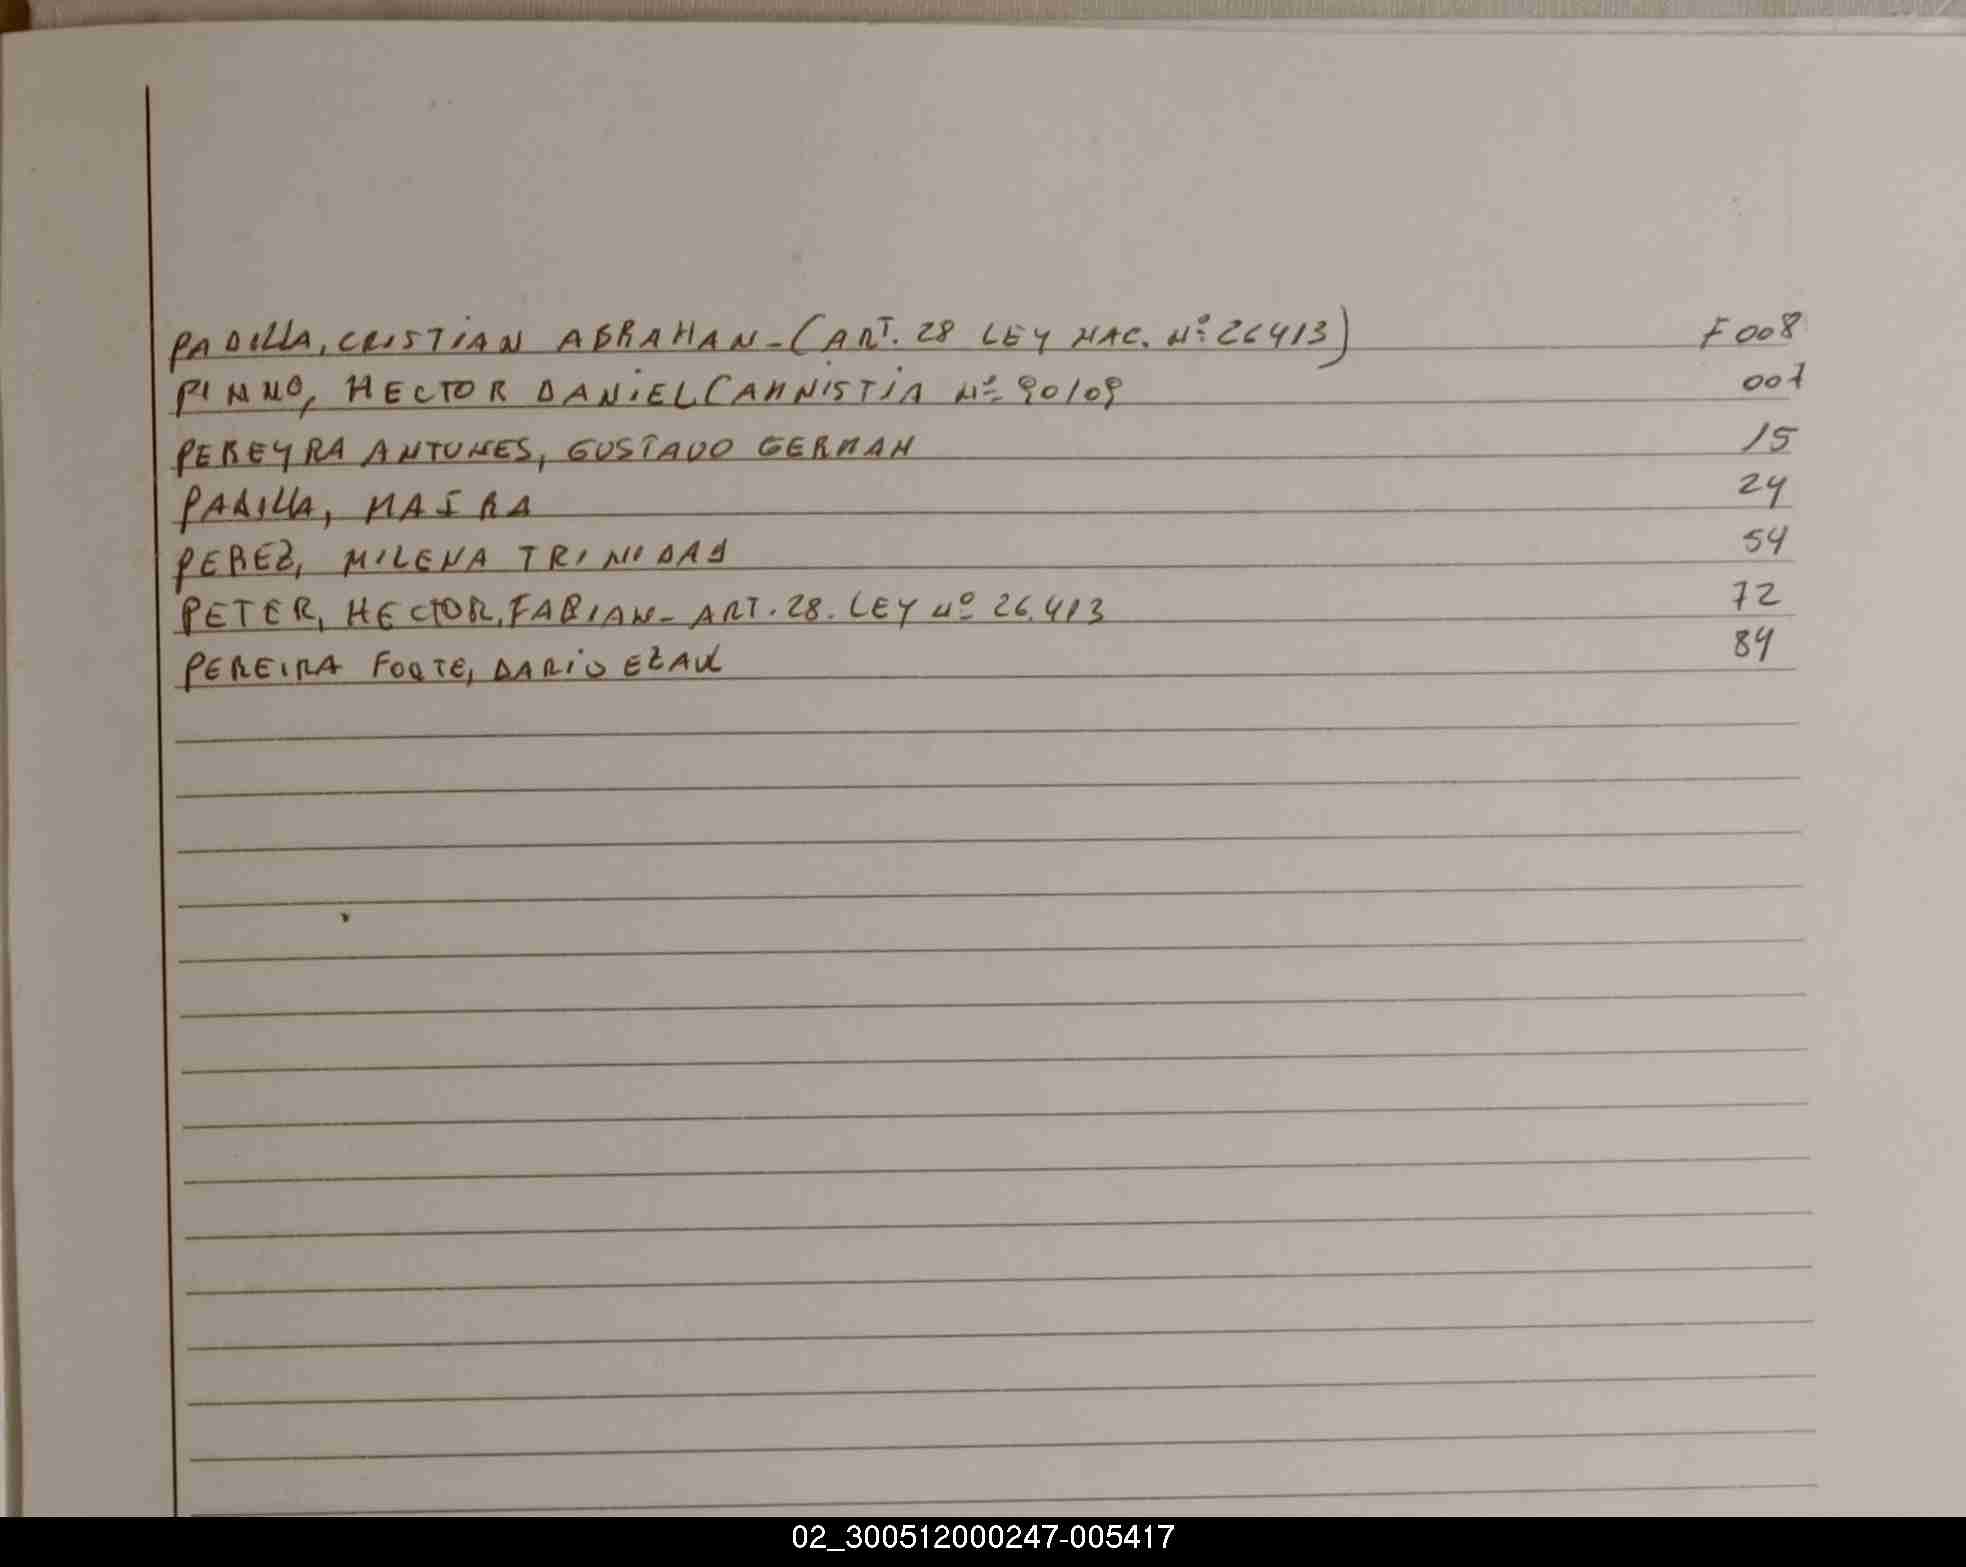 PADILLA, CRISTIAN ABRAHAN-(ART. 28 LEY NAC. Nº 26413) F008
PINNO, HECTOR DANIEL (AMNISTIA Nº 90/09 007
PEREYRA ANTUNES, GUSTAVO GERMAN 15
PADILLA, MAIRA 24
PEREZ, MILENA TRINIDAD 54
PETER, HECTOR, FABIAN- ART. 28. LEY Nº 26.413 72
PEREIRA FORTE, DARIO EZAUL 84
02_300512000247-005417